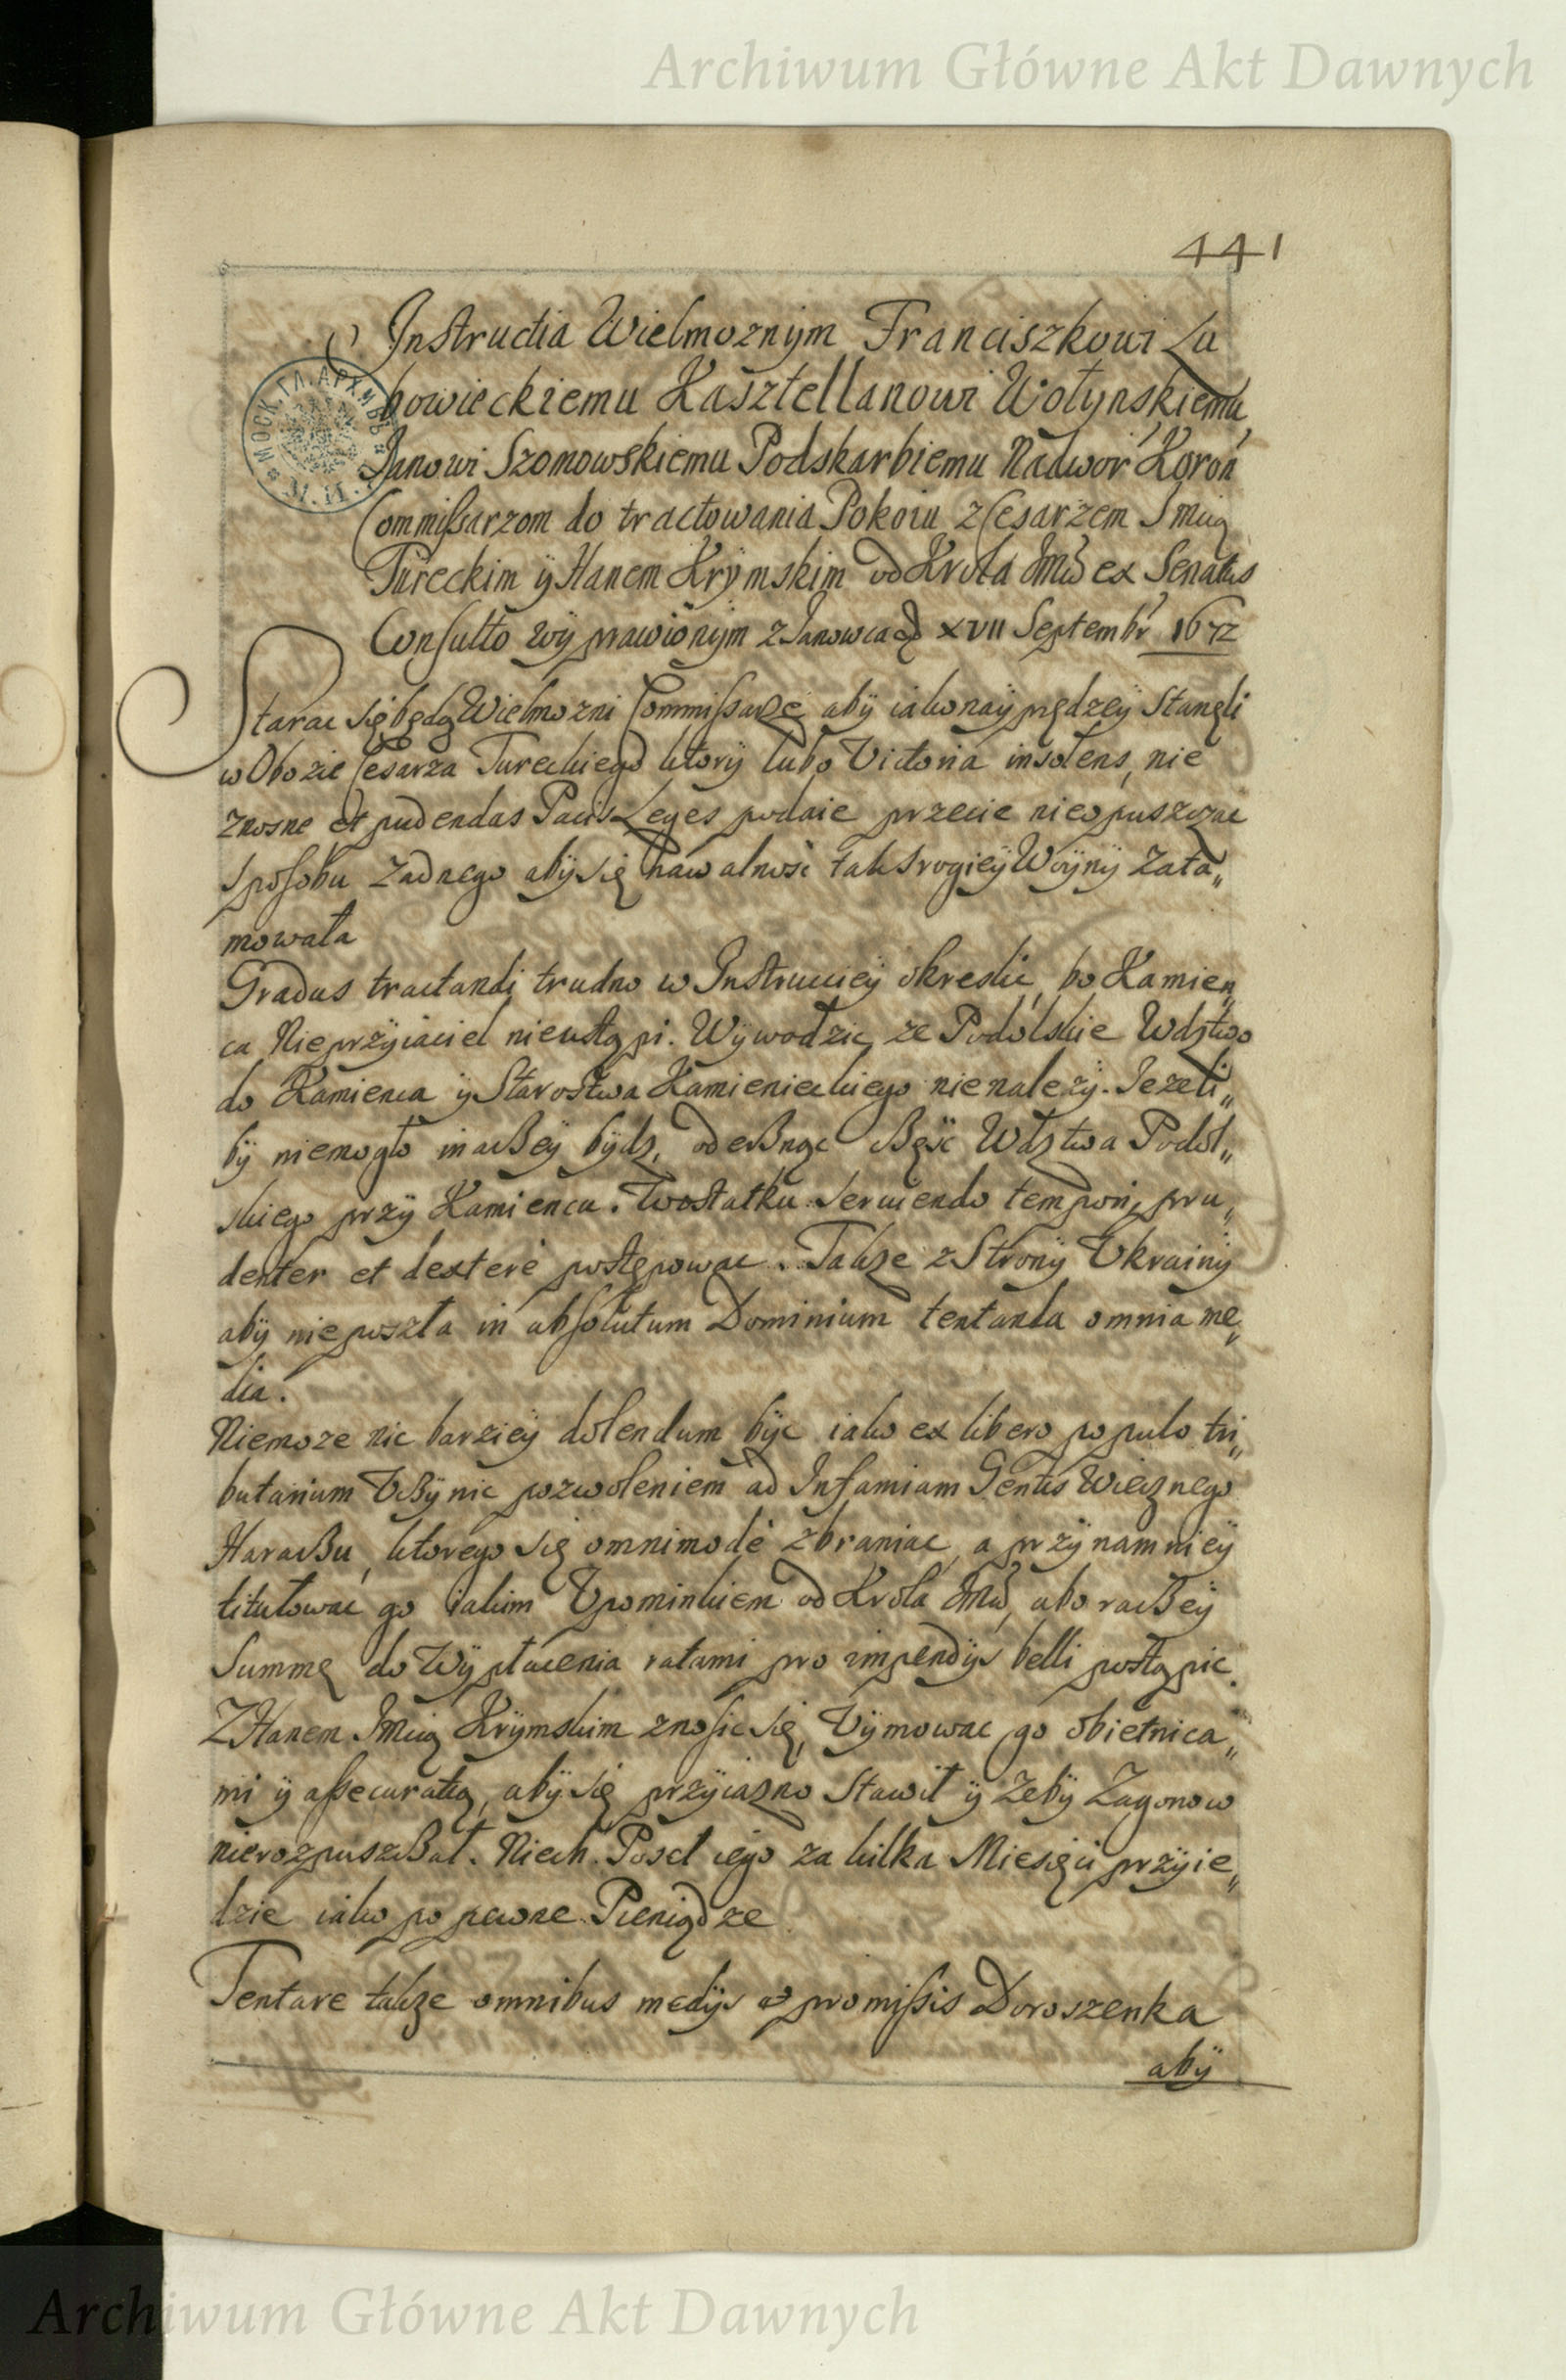 Archiwum Główne Akt Dawnych
441
Instructia Wielmoznÿm Franciszkowi Lu
bowieckiemu Kasztellanowi Wołÿnskiemu,
Janowi Szomowskiemu Podskarbiemu Nadwor Koron
Commissarzom do tractowania Pokoiu z Cesarzem Jmcią
Tureckim ÿ Hanem Krÿmskim od Krola JMci ex Senatus
Consulto wÿprawionÿm z Janowca d XVII Septembr 1672
Starac się będą Wielmozni Commissarze abÿ iakonaÿprędzeÿ stanęli
w Obozie Cesarza Tureckiego ktorÿ lubo Victoria insolens, nie
znosne et pudendas Pacis Leges podaie przecie nieopuszczac
sposobu zadnego abÿ się nawalnosc tak srogieÿ Woÿnÿ zata„
mowała
Gradus tractandi trudno w Instruccieÿ okreslic, bo Kamien„
ca Nieprzÿiaciel nieustąpi. Wÿwodzic ze Podolskie Wdztwo
do Kamienca ÿ Starostwa Kamienieckiego nie nalezÿ. Jezeli„
bÿ niemogło inaczeÿ bÿdz, oderznąc częsc Wdztwa Podol„
skiego przÿ Kamiencu. Wostatku serviendo tempori, pru„
denter et dexterè postępowac. Takze z Stronÿ Vkrainÿ
abÿ nie poszła in absolutum Dominium tentanda omnia me„
dia.
Niemoze nic barzieÿ dolendum bÿc iako ex libero populo tri„
butarium Vczÿnic pozwoleniem ad Infamiam Gentis Wiecznego
Haraczu, ktorego się omnimodè zbraniac, a przÿnamnieÿ
titulowac go iakim Vpominkiem od Krola JMci, abo raczeÿ
Summę do Wÿpłacenia ratami pro impendÿs belli postąpic.
Z Hanem Jmcią Krÿmskim znosic się, Vÿmowac go obietnica„
mi ÿ assecuratią, abÿ się przÿiazno stawił ÿ zebÿ Zagonow
nierozpuszczał. Niech Poseł iego za kilka Miesięci przÿie„
dzie iako po pewne Pieniądze
Tentare takze omnibus medÿs et promissis Doroszenka
abÿ
Archiwum Główne Akt Dawnych